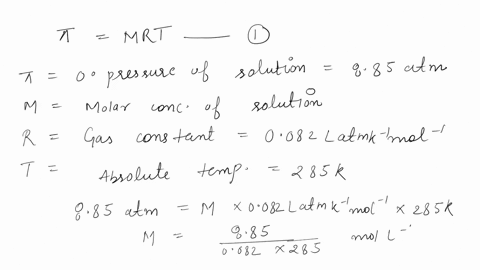 π = MRT —— ①
π = O. pressure of solution = 8.85 atm
M = Molar conc. of solution
R = Gas constant = 0.082 L atm k⁻¹ mol⁻¹
T = Absolute temp. = 285 k
8.85 atm = M × 0.082 L atm k⁻¹ mol⁻¹ × 285 k
M = 8.85 / 0.082 × 285 mol L⁻